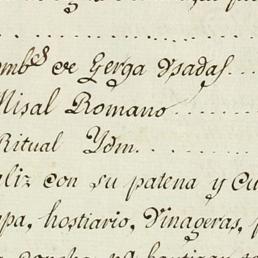 ombr̃ˢ de Gerga Usadas....
Misal Romano..........
Ritual Ydm...........
aliz con su patena y Cu
apa, hostiario, Vinageras,